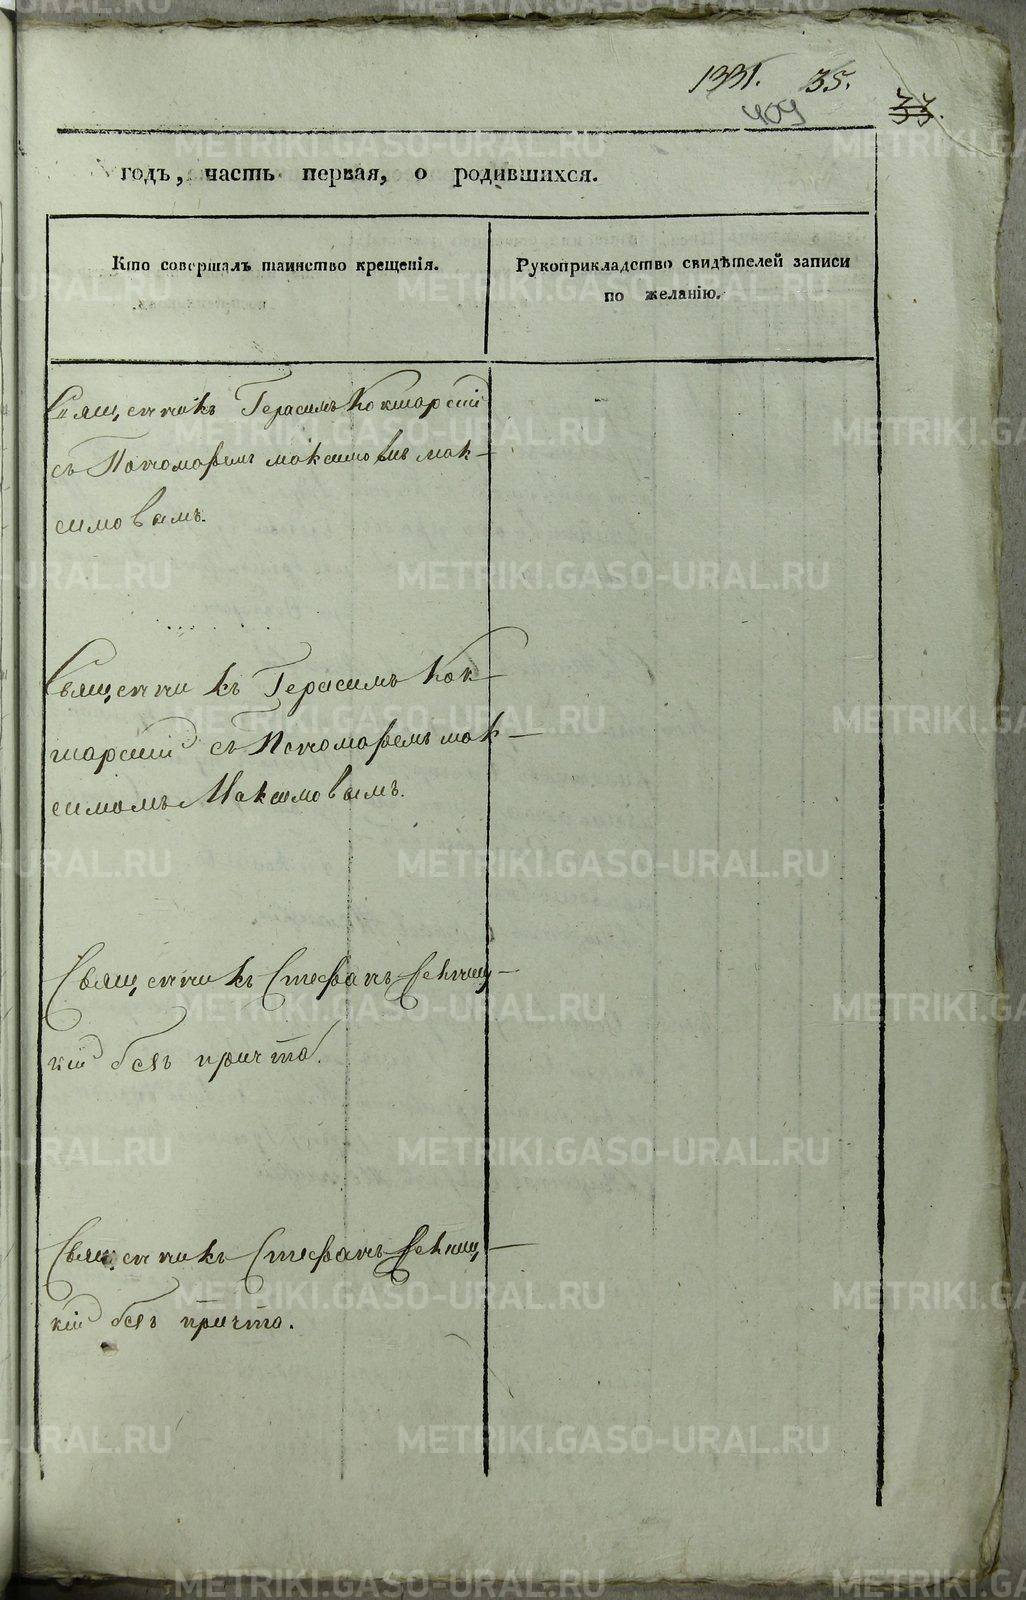 1331. 35.
409
33.
годъ, часть первая, о родившихся.
Кто совершалъ таинство крещенія.
Рукоприкладство свидѣтелей записи
по желанію.
Священникъ Герасимъ Кокшарскій
съ Пономаремъ Максимовымъ Мак-
симовымъ.
Священникъ Герасимъ Кок-
шарскій съ Пономаремъ Мак-
симомъ Максимовымъ.
Священникъ Стефанъ
кій безъ причта.
Священникъ Стефанъ
кій безъ причта.
METRIKI.GASO-URAL.RU